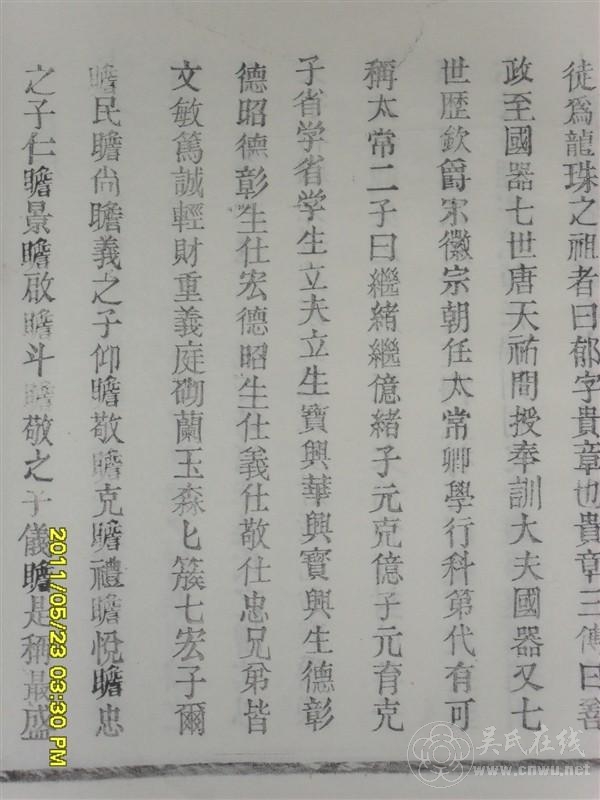 徒爲龍珠之祖者曰郁字貴章也貴章三傳曰善
政至國器七世唐天祐間授奉訓大夫國器又七
世歴欽爵宋徽宗朝任太常卿學行科第代有可
稱太常二子曰繼緒繼億緒子元克億子元育克
子省学省学生立夫立生寶興華興寶興生德彰
德昭德彰生仕宏德昭生仕義仕敬仕忠兄弟皆
文敏篤誠輕財重義庭砌蘭玉森匕簇七宏子爾
瞻民瞻尙瞻義之子仰瞻敬瞻克瞻禮瞻悅瞻忠
之子仁瞻景瞻啟瞻斗瞻敬之子儀瞻是稱最盛
2011/05/23 03:30 PM
吴氏在线
www.cnwu.net